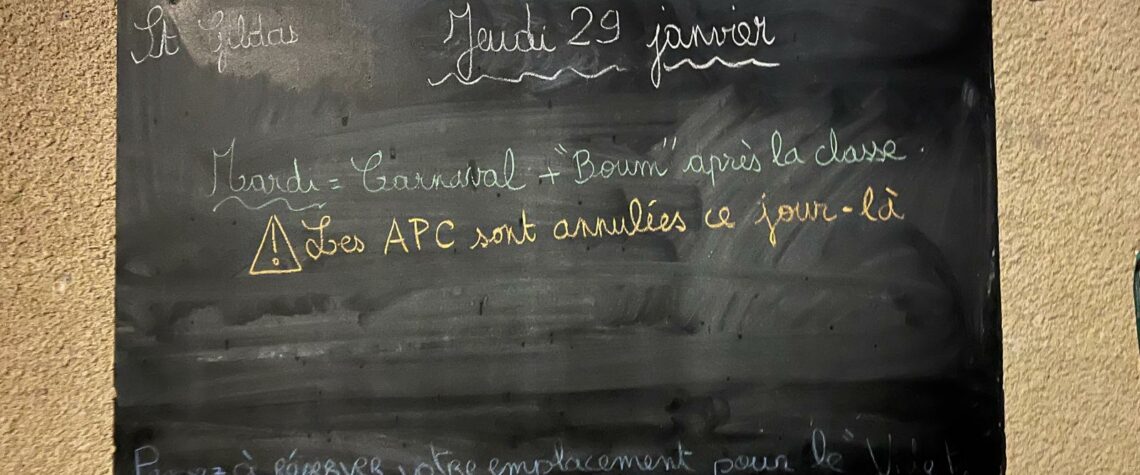 St Gildas
Jeudi 29 janvier
Mardi = Carnaval + "Boum" après la classe.
Les APC sont annulées ce jour-là
à réserver votre emplacement pour le "